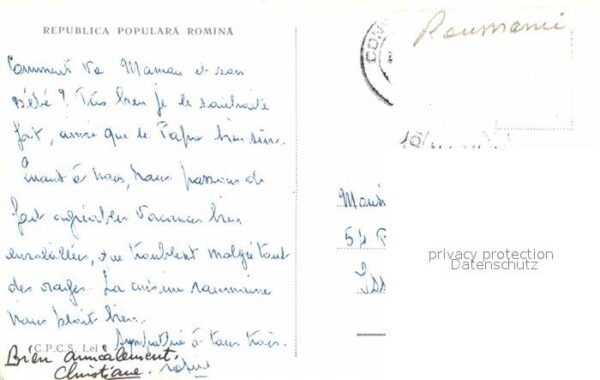 REPUBLICA POPULARĂ ROMÎNĂ
Roumanie
Comment va Maman et son
Bébé ? Très bien je le souhaite
fort, ainsi que le Papa bien sûr.
Quant à nous, nous passons de
fort agréables vacances bien
ensoleillées, que troublent malgré tout
des orages. La cuisine roumaine
nous plait bien.
Sympathie à tous trois.
C.P.C.S. Lei
Bien amicalement.
Christiane.
54
privacy protection
Datenschutz